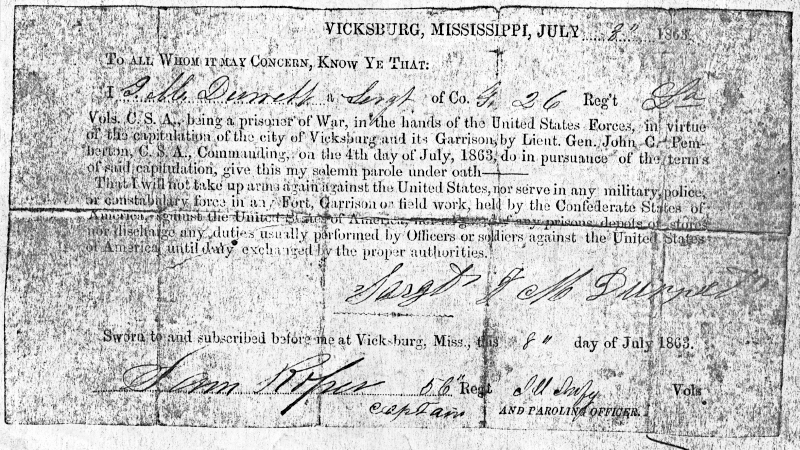 VICKSBURG, MISSISSIPPI, JULY 8" 1863.
TO ALL WHOM IT MAY CONCERN, KNOW YE THAT:
I a Sergt of Co. G, 26 Reg't La
Vols. C. S. A., being a prisoner of War, in the hands of the United States Forces, in virtue
of the capitulation of the city of Vicksburg and its Garrison, by Lieut. Gen. John C. Pem-
berton, C. S. A., Commanding, on the 4th day of July, 1863, do in pursuance of the terms
of said capitulation, give this my solemn parole under oath——
That I will not take up arms again against the United States, nor serve in any military, police,
or constabulary force in any Fort, Garrison or field work, held by the Confederate States of
America, against the United States of America, nor as guard of any prisons, depots or stores
nor discharge any duties usually performed by Officers or soldiers against the United States
of America, until duly exchanged by the proper authorities.
Sargt M
Sworn to and subscribed before me at Vicksburg, Miss., this 8" day of July 1863.
56" Regt Ill Infy Vols
Captain AND PAROLING OFFICER.